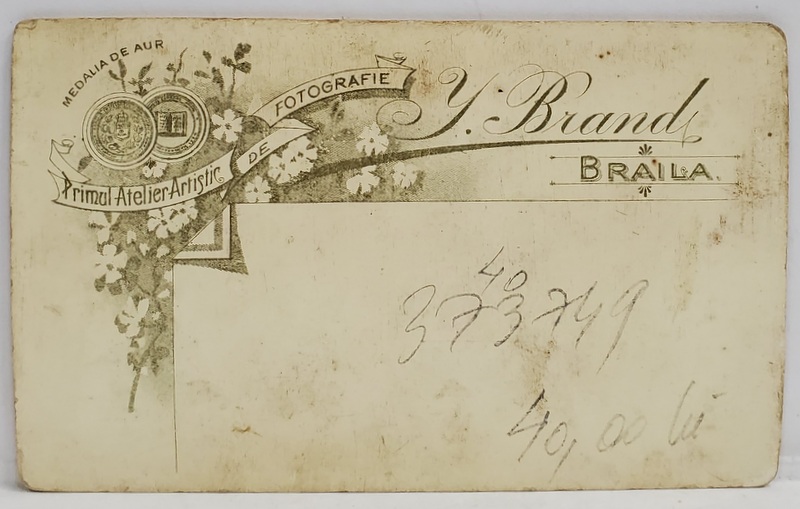 MEDALIA DE AUR
Primul Atelier Artistic DE FOTOGRAFIE
Y. Brand
BRAILA.
40
373749
40,00 lei